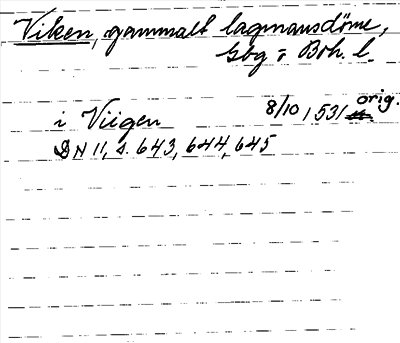 Viken, gammalt lagmansdöme,
Gbg o Boh. l.
i Viigen 8/10 1531 orig.
DN 11, s. 643, 644, 645